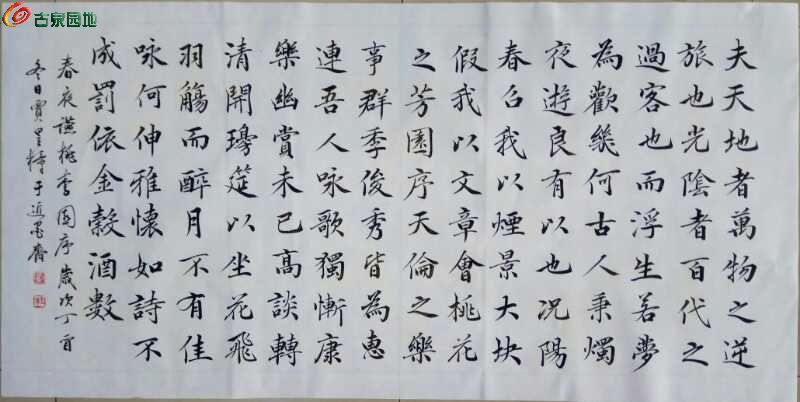 古泉园地
夫天地者萬物之逆
旅也光陰者百代之
過客也而浮生若夢
為歡幾何古人秉燭
夜遊良有以也況陽
春召我以煙景大块
假我以文章會桃花
之芳園序天倫之樂
事群季俊秀皆為惠
連吾人咏歌獨慚康
樂幽賞未已高談轉
清開瓊筵以坐花飛
羽觴而醉月不有佳
咏何伸雅懷如詩不
成罰依金穀酒數
春夜讌桃李園序歲次丁酉
冬日賈于墨齋